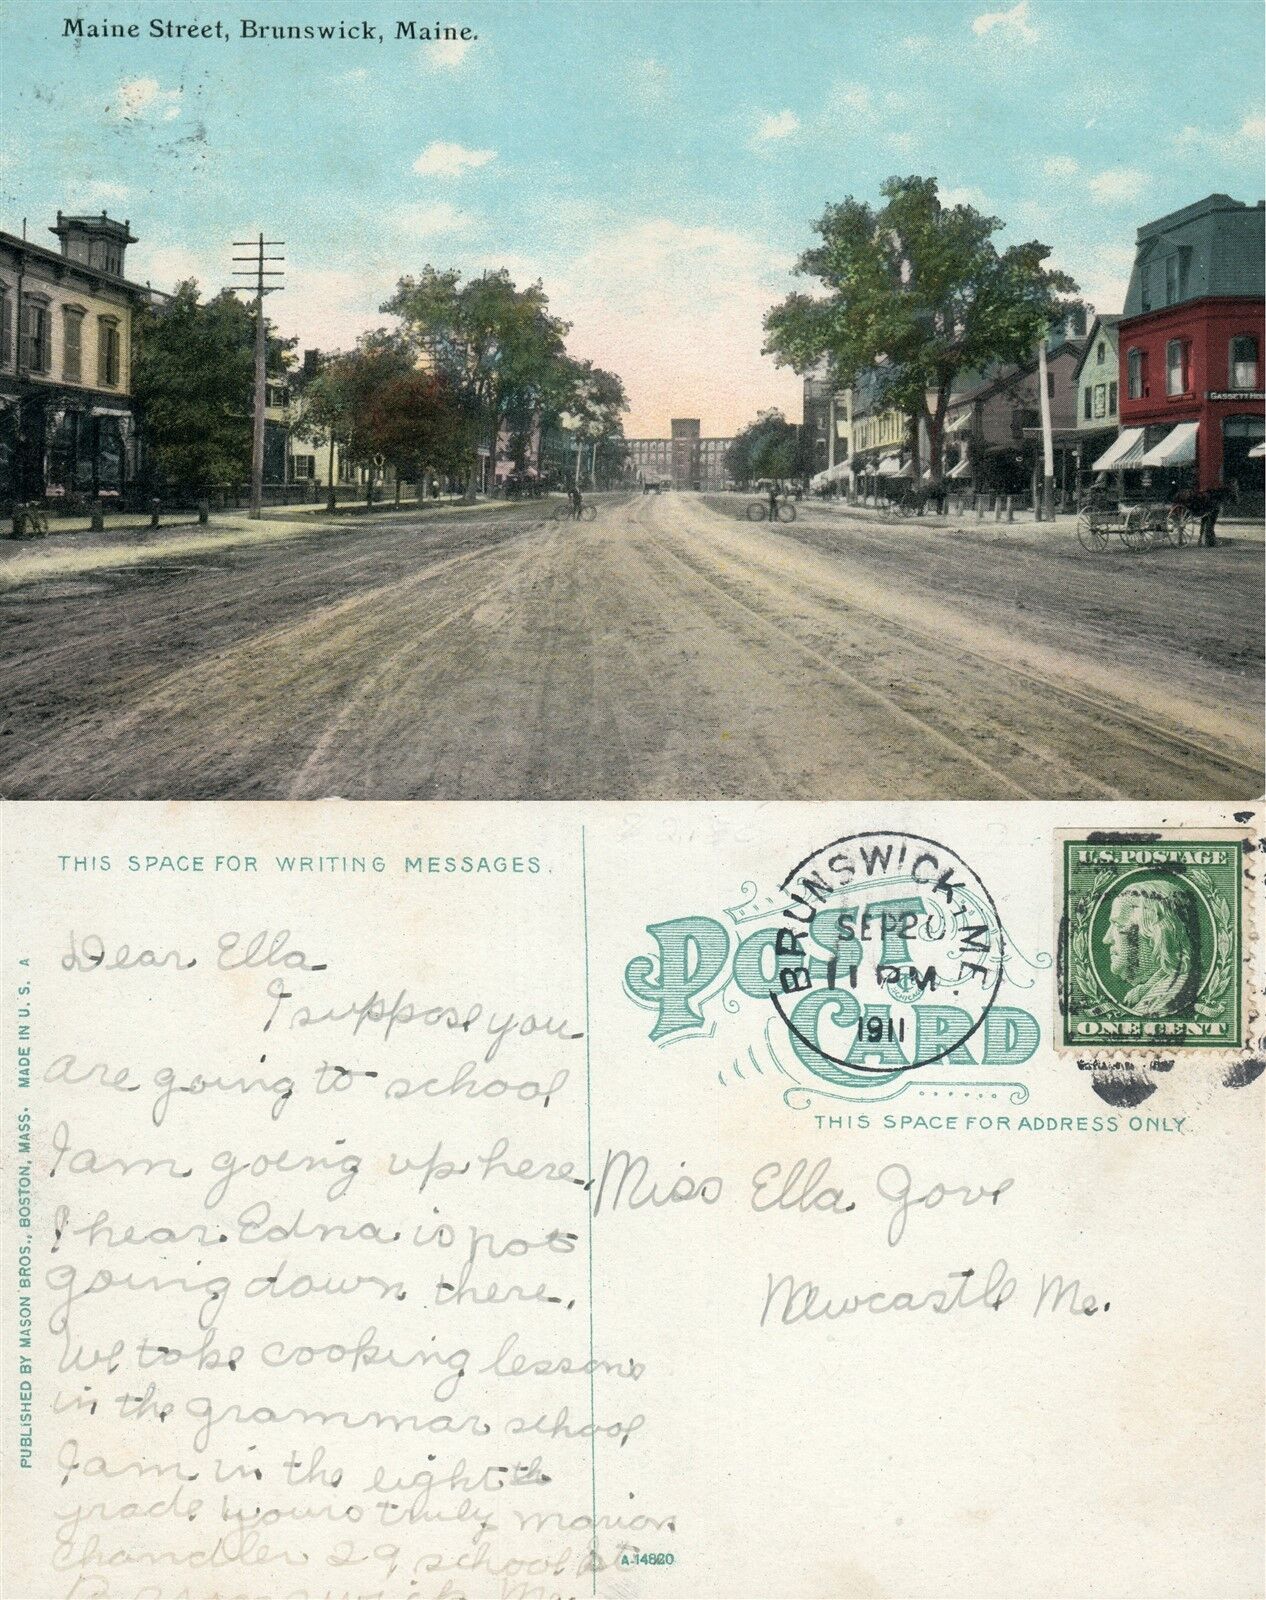 Maine Street, Brunswick, Maine.
GASSETT HOU
THIS SPACE FOR WRITING MESSAGES.
Dear Ella
I suppose you
are going to school
I am going up here.
I hear Edna is not
going down there.
We take cooking lessons
in the grammar school
I am in the eighth
grade yours truly Marion
Chandler 29, school st
Brunswick Me
PUBLISHED BY MASON BROS., BOSTON, MASS. MADE IN U. S. A
POST CARD
BRUNSWICK, ME.
SEP 20
11 PM.
1911
U.S. POSTAGE
ONE CENT
THIS SPACE FOR ADDRESS ONLY.
Miss Ella Gove
Newcastle Me.
A-14820